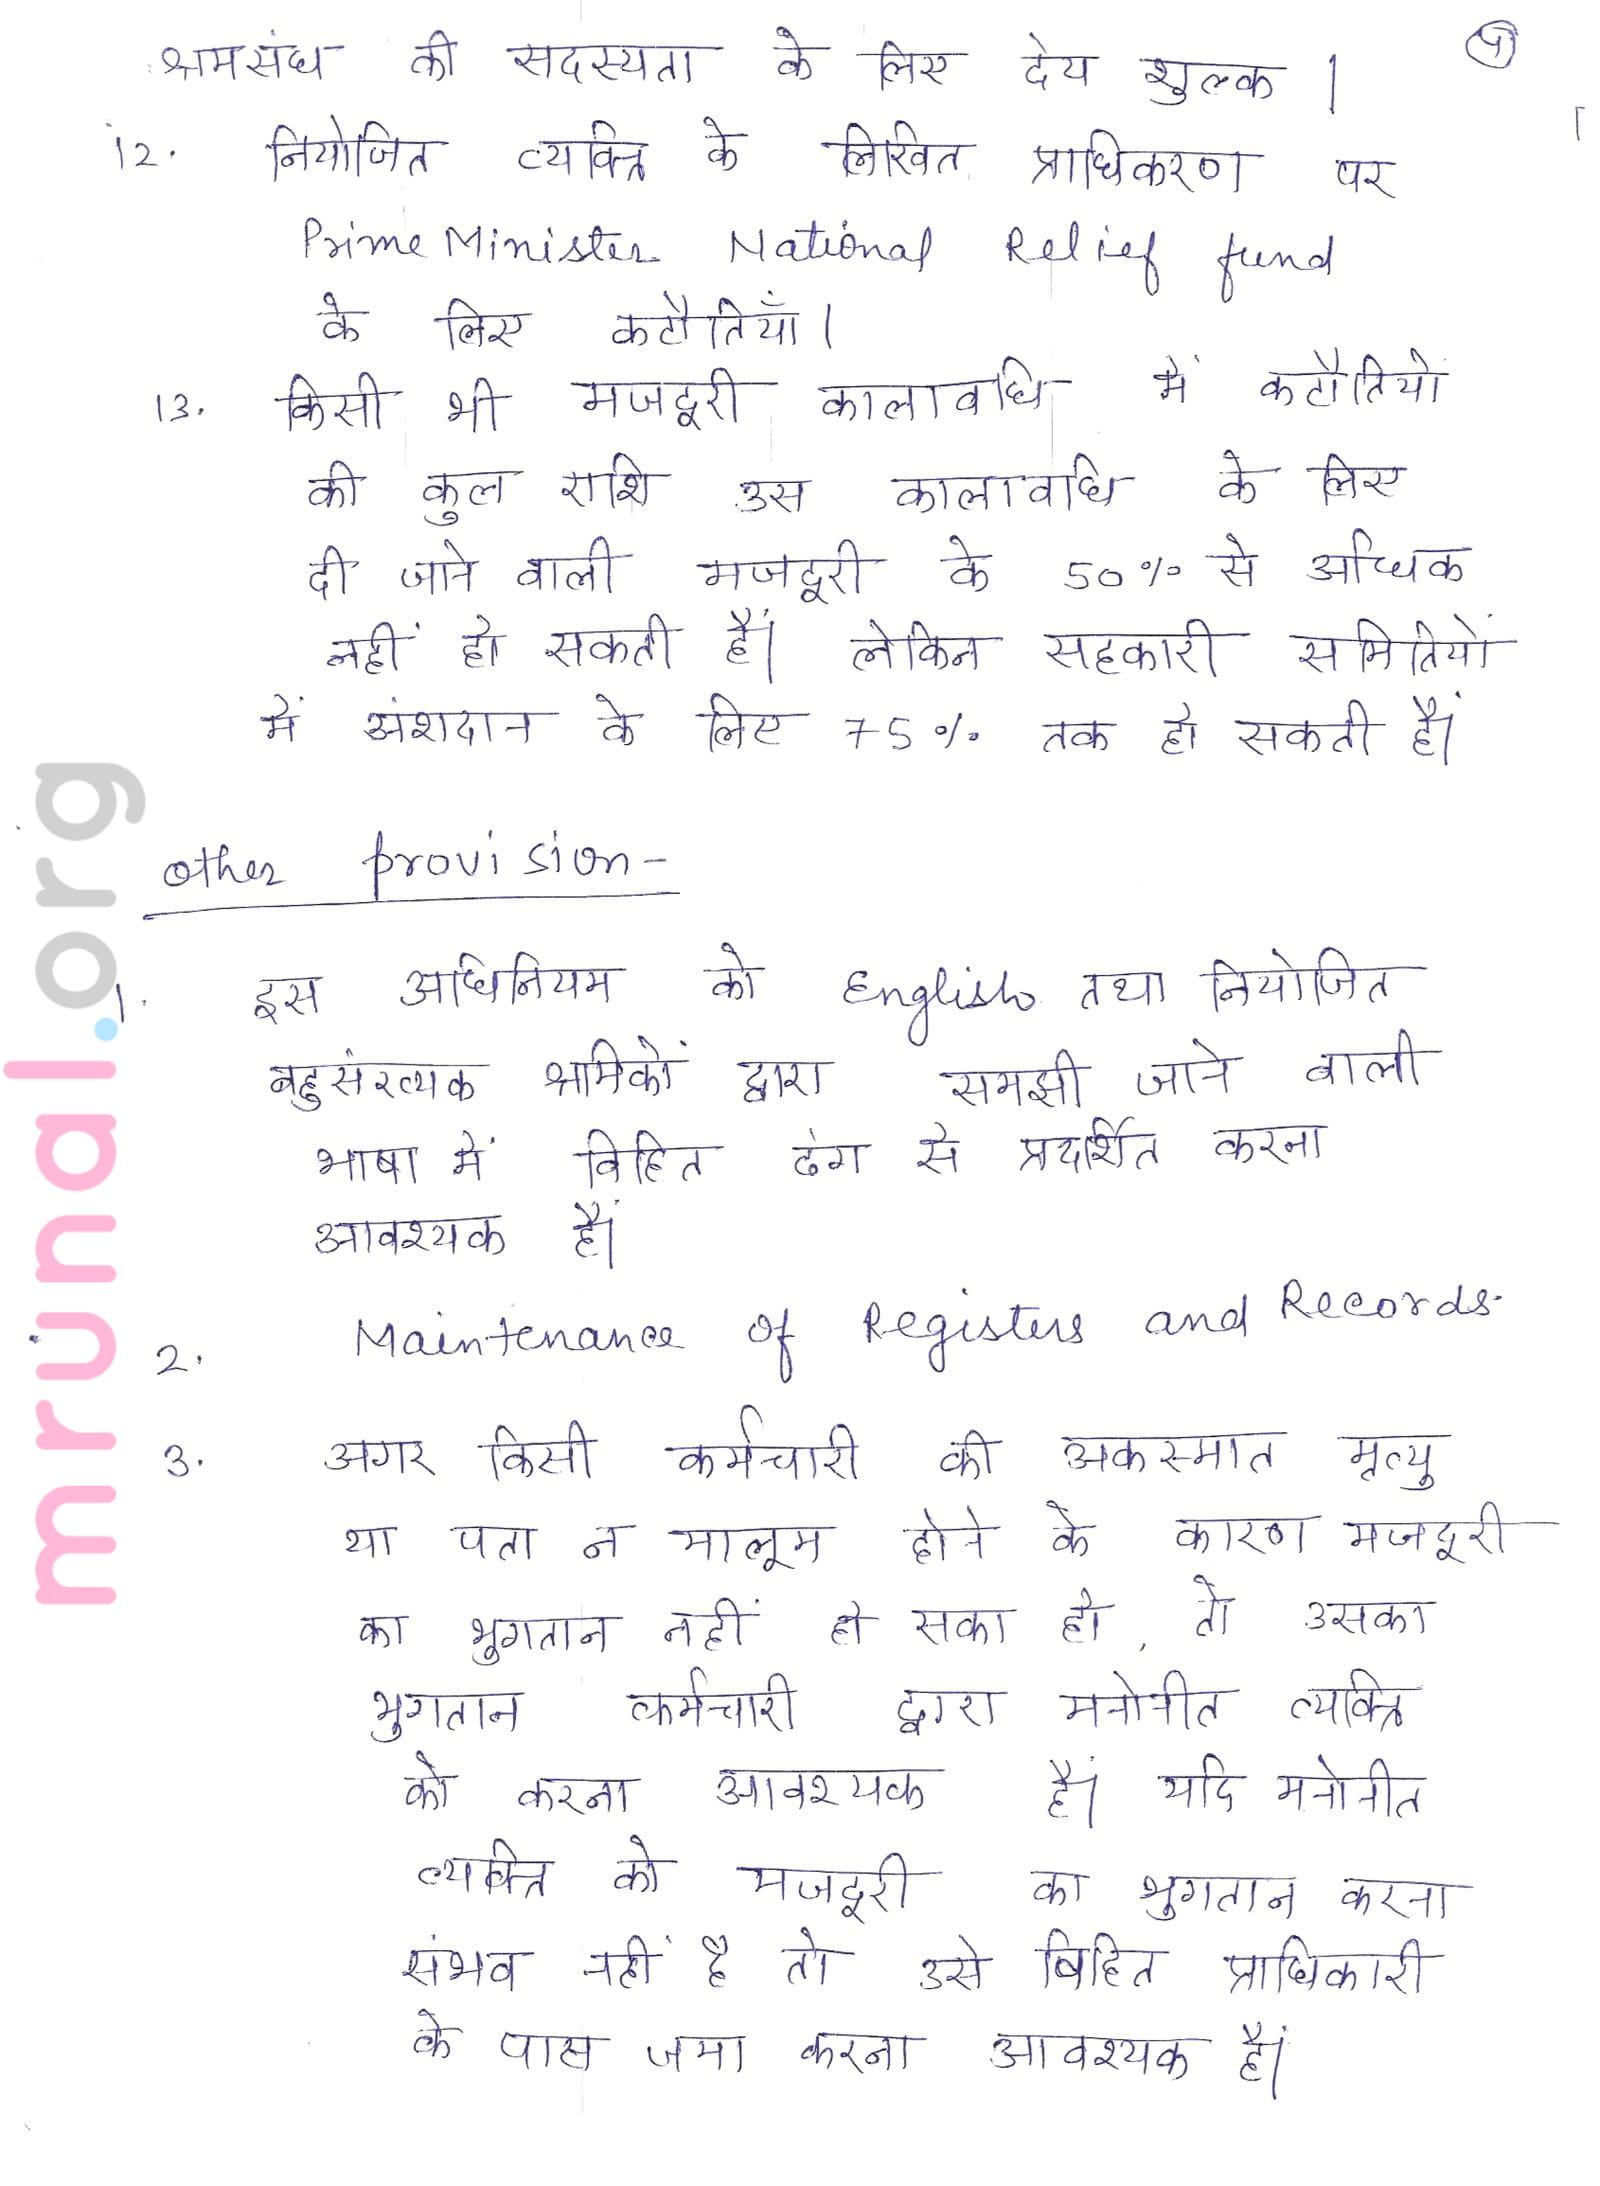 श्रमसंघ की सदस्यता के लिए देय शुल्क।
12. नियोजित व्यक्ति के लिखित प्राधिकरण पर
Prime Minister National Relief fund
के लिए कटौतियाँ।
13. किसी भी मजदूरी कालावधि में कटौतियों
की कुल राशि उस कालावधि के लिए
दी जाने वाली मजदूरी के 50% से अधिक
नहीं हो सकती हैं। लेकिन सहकारी समितियों
में अंशदान के लिए 75% तक हो सकती हैं।
other provision-
1. इस अधिनियम को English तथा नियोजित
बहुसंख्यक श्रमिकों द्वारा समझी जाने वाली
भाषा में विहित ढंग से प्रदर्शित करना
आवश्यक हैं।
2. Maintenance of Registers and Records.
3. अगर किसी कर्मचारी की अकस्मात मृत्यु
या पता न मालूम होने के कारण मजदूरी
का भुगतान नहीं हो सका हो, तो उसका
भुगतान कर्मचारी द्वारा मनोनीत व्यक्ति
को करना आवश्यक हैं। यदि मनोनीत
व्यक्ति को मजदूरी का भुगतान करना
संभव नहीं है तो उसे विहित प्राधिकारी
के पास जमा करना आवश्यक हैं।
mrunal.org